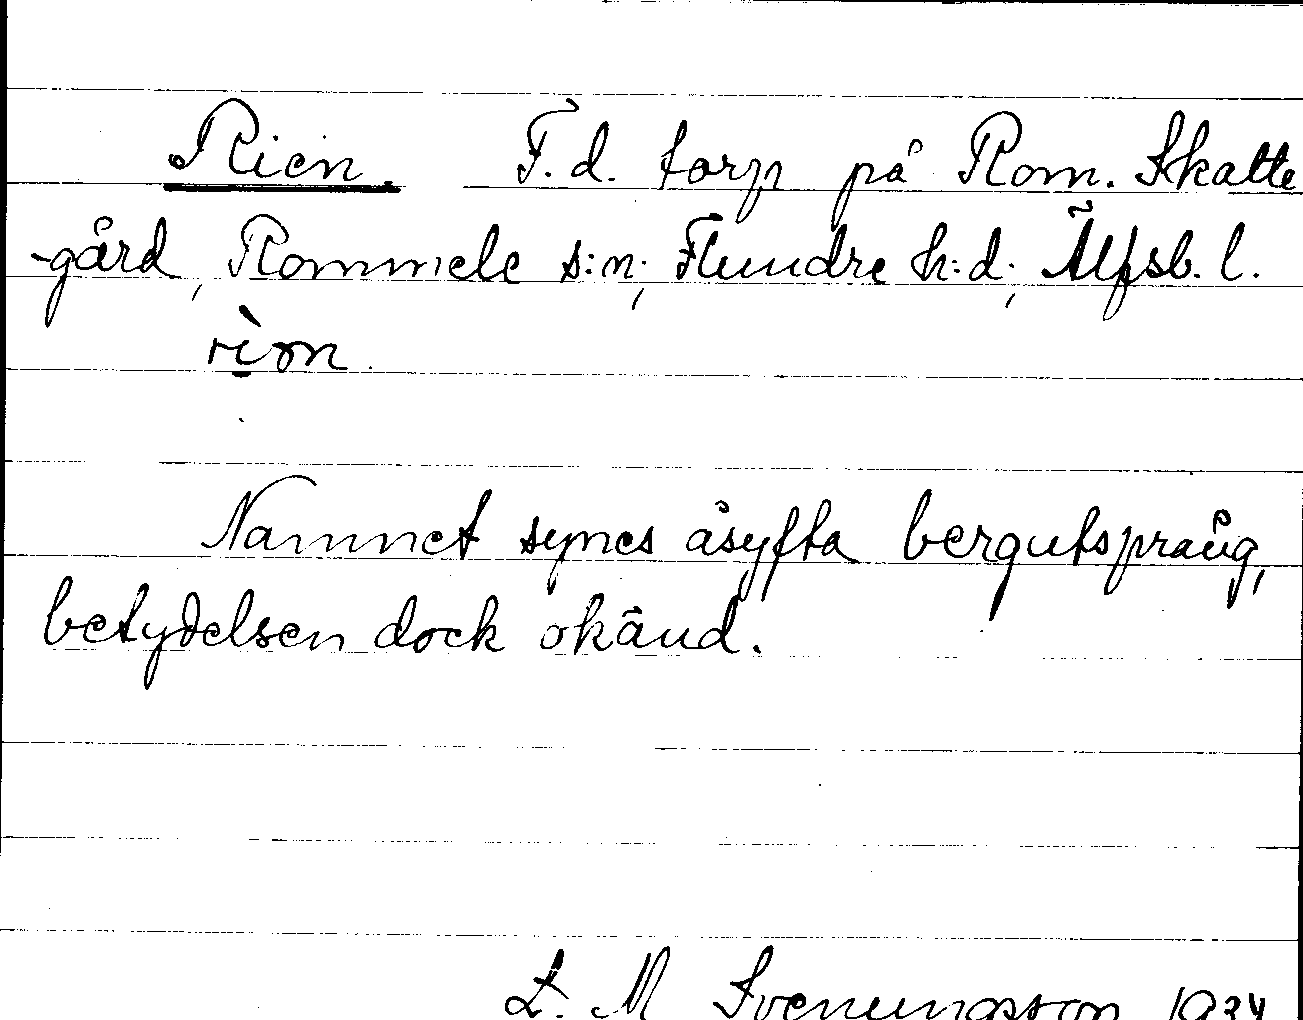 Rien. F.d. torp på Rom. Skatte
-gård, Rommele s:n; Flundre h:d; Älfsb. l.
Namnet synes åsyfta bergutsprång,
betydelsen dock okänd.
M Svenungsson 1934